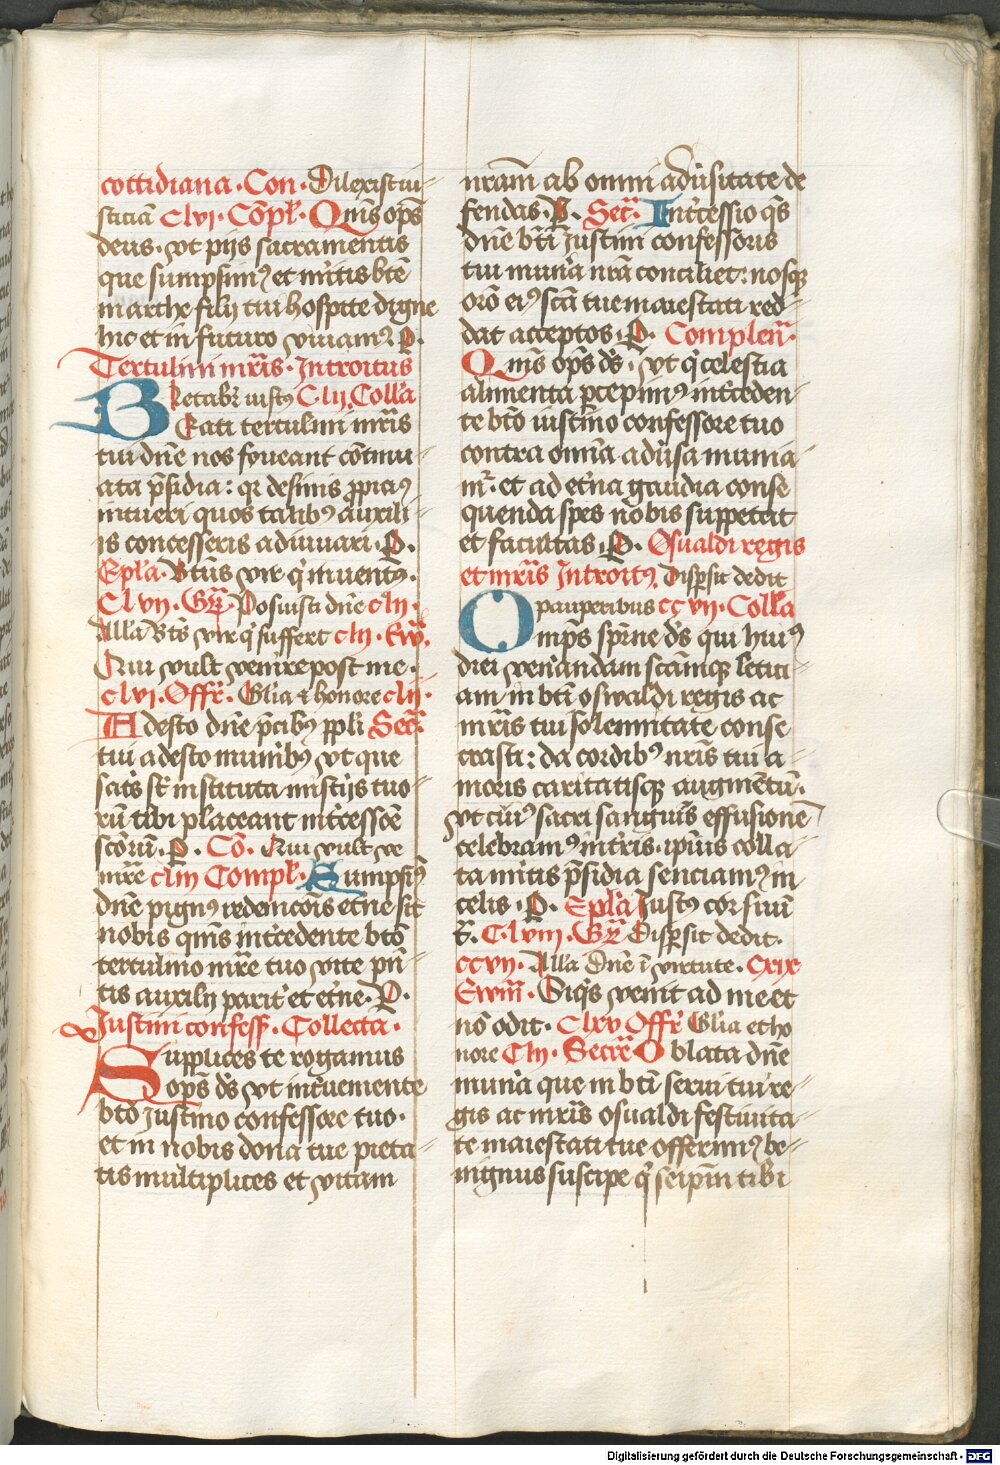 cottidiana · Con · Dilexisti iu⸗
sticiā clvj · Cōpl̛ · Qm̄s op̄s
deus · vt pijs sacramentis
que sumpsimꝰ et mr̄itis btē
marthe filij tui hospite digne
hic et in futuro viuamꝰ P.
Tertulini mr̄is · Introitus
Letabr̛ iustꝰ Clij Coll̛a
Beati tertulini mr̄is
tui dn̄e nos foueant cōtinu⸗
ata p̄sidia : qr̛ desinis ꝓpiciꝰ
intueri quos talibꝰ auxili⸗
is concesseris adiuuari · P.
Epl̛a · Btūs vir q̛ inuentꝰ ·
Clvij · Gr̄ · Posuisti dn̄e clij ·
All̛a Bt̄s vir q̛ suffert clij · Ew̄
Qui vult venire post me ·
clvj · Offr̄ · Glīa ⁊ honore clij ·
Adesto dn̄e p̄cibꝰ ppli Secr̄
tui adesto muneribꝰ vt que
sac̄s st̄ instituta mist̛ijs tuo⸗
rū tibi placeant int̛cessōe
scōrū · P · Cō · Qui vult ve
nire clij Compl̛ · Sumpsimꝰ
dn̄e pignꝰ redemcōis etn̄e sit
nobis qm̄s int̛cedente btō
tertulino mr̄e tuo vite pn̄⸗
tis auxiliū parit̛ et etn̄e · P.
Justini confess̄ · Collecta ·
Supplices te rogamus
op̄s ds̄ vt int̛ueniente
btō Justino confessore tuo ·
et in nobis dona tue pieta⸗
tis multiplices et vitam
nr̄am ab omni adưsitate de
fendas · P. Secr̄ · Int̛cessio qs̄
dn̄e btī Justini confessoris
tui mun̛a nr̄a conciliet : nosqꝫ
orō eiꝰ scā tue maiestati red⸗
dat acceptos · P. Complen̄ ·
Qm̄s op̄s ds̄ · vt q̛ celestia
alimenta pcepimꝰ int̛ceden⸗
te btō iustino confessore tuo
contra omn̄ia adưsa munia⸗
mr̛ · et ad et̛na gaudia conse⸗
quenda spes nobis suppetat
et facultas · P. Osualdi regis
et mr̄is Introitꝰ Disp̄sit dedit
pauperibus ccvij · Coll̛a
Omp̄s sp̄rne ds̄ qui huiꝰ
diei ven̛andam scāmqꝫ leticī⸗
am in btī oswaldi regis ac
mr̄is tui solennitate conse⸗
crasti : da cordibꝰ nr̄is tui a⸗
moris caritatisqꝫ augmētū ·
vt cuiꝰ sacri sanguīs effusionē
celebramꝰ in tr̛is · ipsius colla⸗
ta mr̄itis p̄sidia senciamꝰ in
celis · P. Epl̛a Justꝰ cor suū
t̄r · Clviij · Gr̄ Disp̄sit dedit ·
ccvij · All̛a Dn̄e ī virtute · cxix
Ewm̄ · Siq̛s venit ad me et
nō odit · Clxv Offr̛ Glīa et ho
nore Clij · Secr̄e Oblata dn̄e
mun̛a que in btī serui tui re⸗
gis ac mr̄is osualdi festiuita⸗
te maiestati tue offerimꝰ be⸗
nignus suscipe q̛ seip̄m tibi